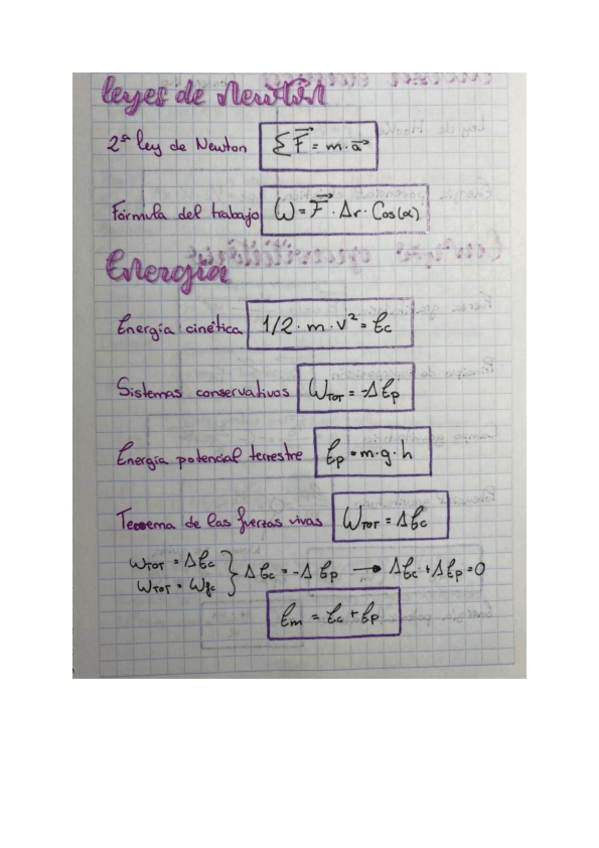 leyes de Newton
2ª ley de Newton ΣF⃗ = m · a⃗
Fórmula del trabajo W = F⃗ · Δr · Cos(α)
Energía
Energía cinética 1/2 · m · v² = Ec
Sistemas conservativos WTOT = -ΔEp
Energía potencial terrestre Ep = m · g · h
Teorema de las fuerzas vivas WTOT = ΔEc
WTOT = ΔEc
WTOT = Wfc } ΔEc = -ΔEp → ΔEc + ΔEp = 0
Em = Ec + Ep